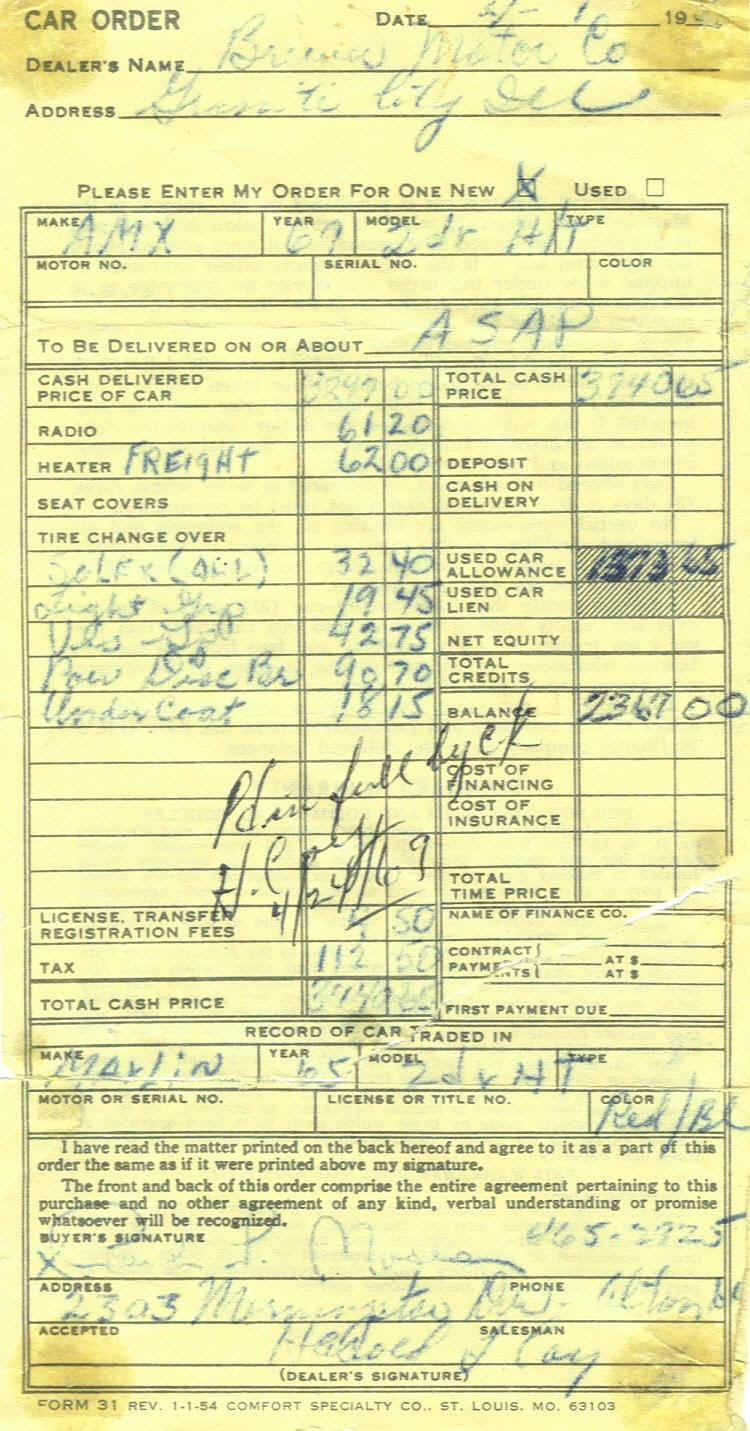 CAR ORDER DATE 19
DEALER'S NAME Motor Co
ADDRESS City Ill
PLEASE ENTER MY ORDER FOR ONE NEW X USED
MAKE AMX YEAR 69 MODEL 2dr H/T TYPE
MOTOR NO. SERIAL NO. COLOR
TO BE DELIVERED ON OR ABOUT ASAP
CASH DELIVERED PRICE OF CAR 3297 00 TOTAL CASH PRICE 3740 65
RADIO 61 20
HEATER FREIGHT 62 00 DEPOSIT
SEAT COVERS CASH ON DELIVERY
TIRE CHANGE OVER
SOLEX (ALL) 32 40 USED CAR ALLOWANCE 1373 65
Light Grp 19 45 USED CAR LIEN
Vis Grp 42 75 NET EQUITY
Pow Disc Br 90 70 TOTAL CREDITS
Undercoat 18 15 BALANCE 2367 00
Pd in full by ck
COST OF FINANCING
COST OF INSURANCE
H. Coy
4/24/69
TOTAL TIME PRICE
LICENSE, TRANSFER REGISTRATION FEES 50 NAME OF FINANCE CO.
TAX 112 50 CONTRACT PAYMENTS AT $ AT $
TOTAL CASH PRICE 3740 65 FIRST PAYMENT DUE
RECORD OF CAR TRADED IN
MAKE Marlin YEAR 65 MODEL 2dr HT TYPE
MOTOR OR SERIAL NO. LICENSE OR TITLE NO. COLOR Red/Bl
I have read the matter printed on the back hereof and agree to it as a part of this
order the same as if it were printed above my signature.
The front and back of this order comprise the entire agreement pertaining to this
purchase and no other agreement of any kind, verbal understanding or promise
whatsoever will be recognized.
BUYER'S SIGNATURE 465-2925
X
ADDRESS PHONE
2303 Morningstar Dr. Alton
ACCEPTED SALESMAN
Harold J Coy
(DEALER'S SIGNATURE)
FORM 31 REV. 1-1-54 COMFORT SPECIALTY CO., ST. LOUIS. MO. 63103